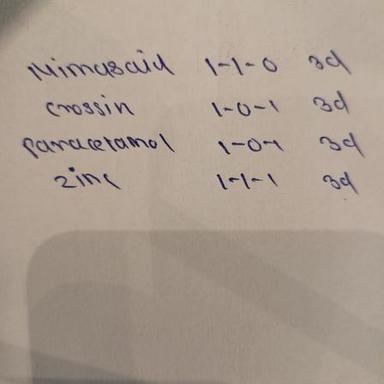 Nimasaid 1-1-0 3d
crossin 1-0-1 3d
paracetamol 1-0-1 3d
zinc 1-1-1 3d